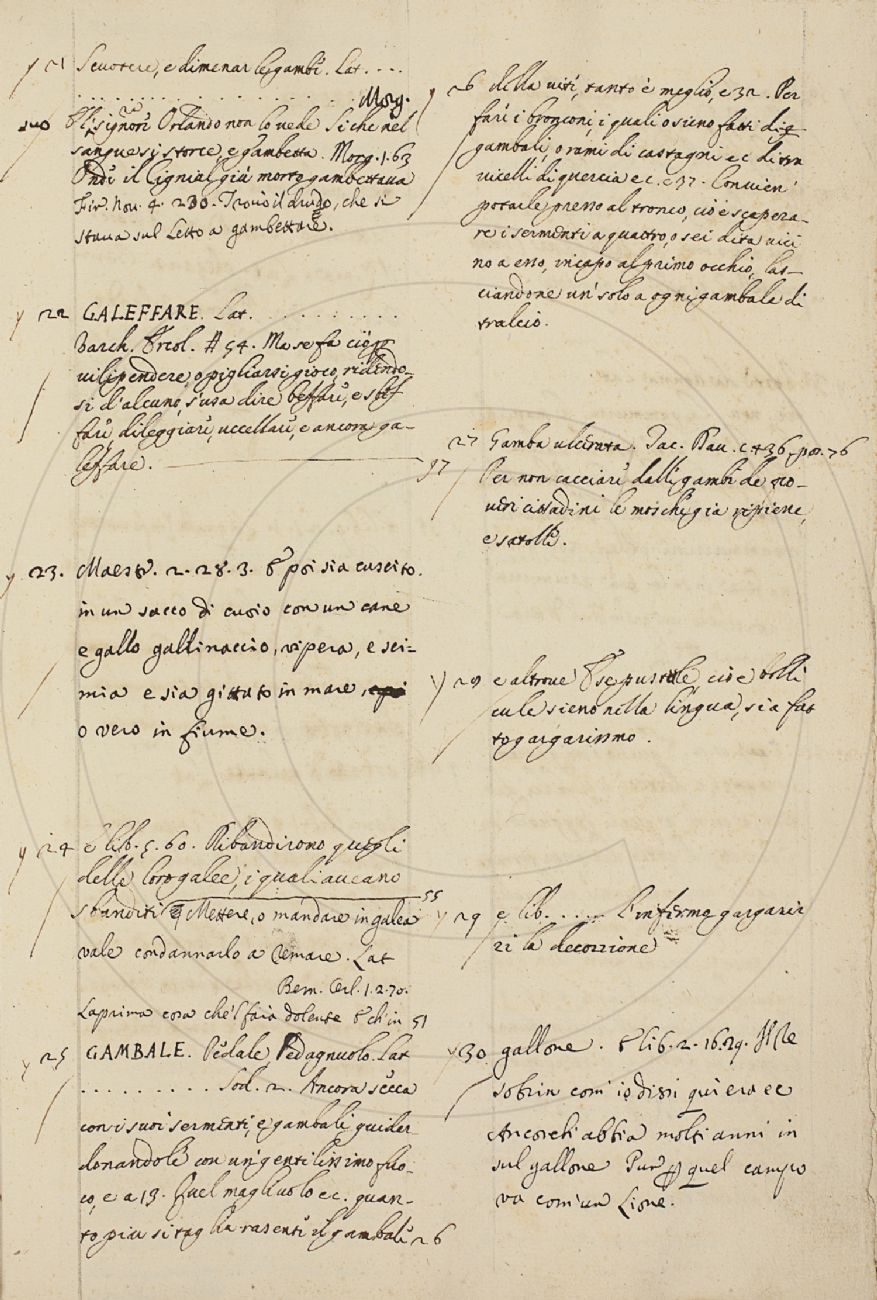 21 Scuotere, e dimenar le gambe. Lat. ....
. . . . . . . . . . . . . . . . Morg.
E 'l signore Orlando non lo vede Si che nel
sangue si storce, e gambetta. Morg. 1. 63
Onde il Cignial già morto gambettava
Fir. Nov. 4. 230. Trovò il drudo, che si
stava sul letto a gambettare.
22 GALEFFARE. Lat. . . . . . . . . . .
Varch. Ercol. 54. Ma se fa ciò per
vilipendere, o pigliarsi gioco, ridendo-
si d'alcuno, s'usa dire beffare, e sbef
fare, dileggiare, uccellare, e ancora ga-
leffare.
97
23. Maestr. 2. 28. 3. E poi sia cuscito
in un sacco di cuoio con un cane
e gallo gallinaccio, vipera, e sci-
mia e sia gittato in mare,
o vero in fiume.
24 e lib. 5. 60. Ribandirono quegli
delle loro galee, i quali aveano
sbanditi Mettere, o mandare in galea 55
vale condannarlo a remare. Lat
Bern. Orl. 1. 2. 70.
La prima cosa che 'l faia dolente E ch' in 51
25 GAMBALE. Pedale, Pedagnuolo. Lat
. . . . . . . . . . Sod. 2. Ancora secca
con i suoi sermenti, e gambali guider
donandole con un gentilissimo fuo-
co, e a 13. Quel magliuolo ec. quan-
to più si taglia rasente il gambale 26
26 della vite, tanto è meglio, e 32. Per
fare i bronconi, i quali o sieno fatti di
gambali, o rami di castagni ec di ten
nicelli di quercia ec. e 37. Convien
potarle presso al tronco, cioè scapezza-
re i sermenti a quattro, o sei dita vici
no a esso, in capo al primo occhio, las-
ciandone un' solo a ogni gambale di
tralcio.
27 Gamba ulcerata. Iac. Pau. c 36, por. 76
Per non cacciare dalle gambe de po-
veri cittadini le mosche già ripiene,
e satolle.
e altrove E se pustule, cioè bolli
cule sieno nella lingua, sia fat
to gargarismo.
29 e lib. . . . . . L'infermo gargariz
zi la decozione
30 gallone. E lib. 2. 16. 29. Il Re
Sobrin com' io dissi qui era ec
Ancorché abbia molti anni in
sul gallone Pur per quel campo
va com' un Lione.